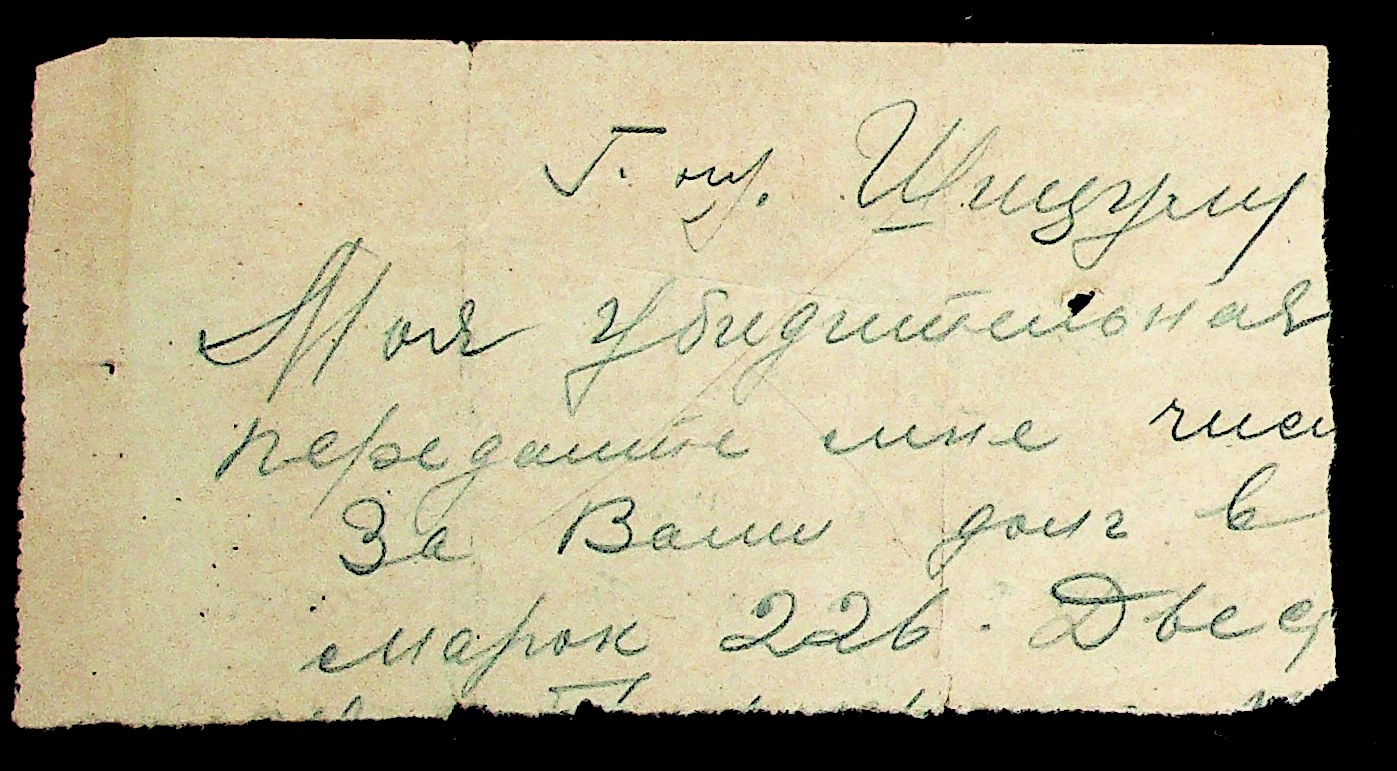 Г.
Моя убидительная
передайте мне
За Ваш долг в
марок 226. Двес